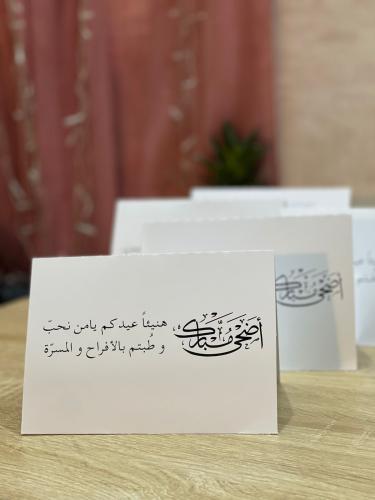 أضحى مُبارك
هنيئاً عيدكم يامن نحبّ
و طُبتم بالأفراح و المسرّة
أضحى مُبارك